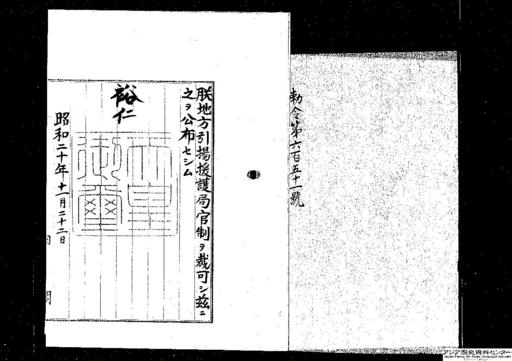 勅令第六百五十一號
朕地方引揚援護局官制ヲ裁可シ茲ニ
之ヲ公布セシム
裕仁
天皇御璽
昭和二十年十一月二十二日
アジア歴史資料センター